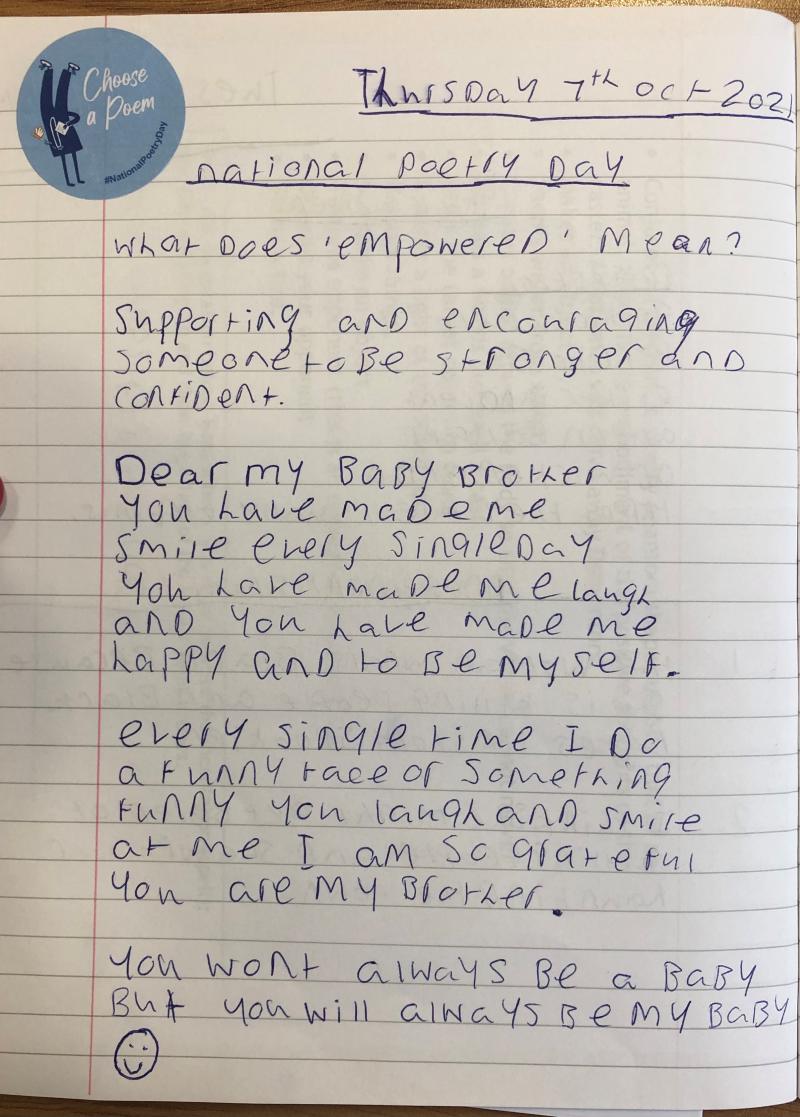 Choose
a Poem
#NationalPoetryDay
Thursday 7th Oct 2021
national Poetry Day
What Does 'empowered' Mean?
Supporting and encouraging
someone to Be stronger and
confident.
Dear my Baby Brother
You have made me
smile every single Day
You have made me laugh
and you have made me
happy and to Be myself.
every single time I Do
a funny face or something
funny you laugh and smile
at me I am so grateful
you are my Brother.
You wont always Be a Baby
But you will always Be my Baby